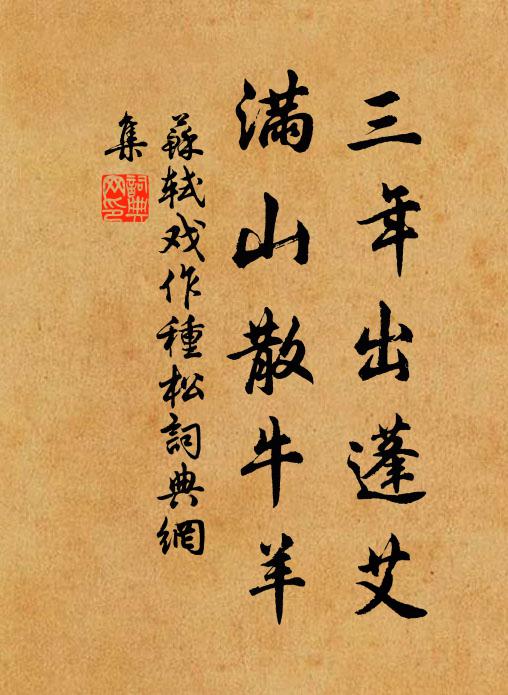 三年出蓬艾
满山散牛羊
蘇軾戏作種松詞典網
集
詞典
网印